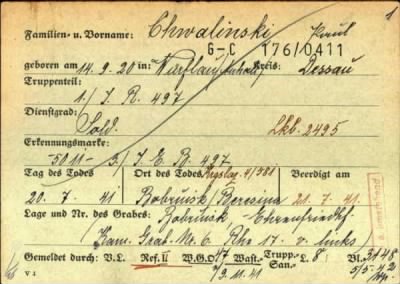 1
Familien- u. Vorname: Chwalinski, Paul
G-C 176/0411
geboren am 14.9.20 in: Kreis: Dessau
Truppenteil:
1./J.R. 497
Dienstgrad:
Sold. Lkb. 2495
Erkennungsmarke:
-5011- 3./J.E.R. 497
Tag des Todes Ort des Todes Beerdigt am
20.7.41 Bobruisk/Beresina 21.7.41.
Lage und Nr. des Grabes: Bobruisk - Ehrenfriedhf.
Kam. Grab Nr. 6 Rhe 17. v. links
Gemeldet durch: V.L. Ref. II W.G.O. 17 Wast.- Trupp.- San.- L. 8 Bl. 3148
9.11.41 5/5.42
V 2